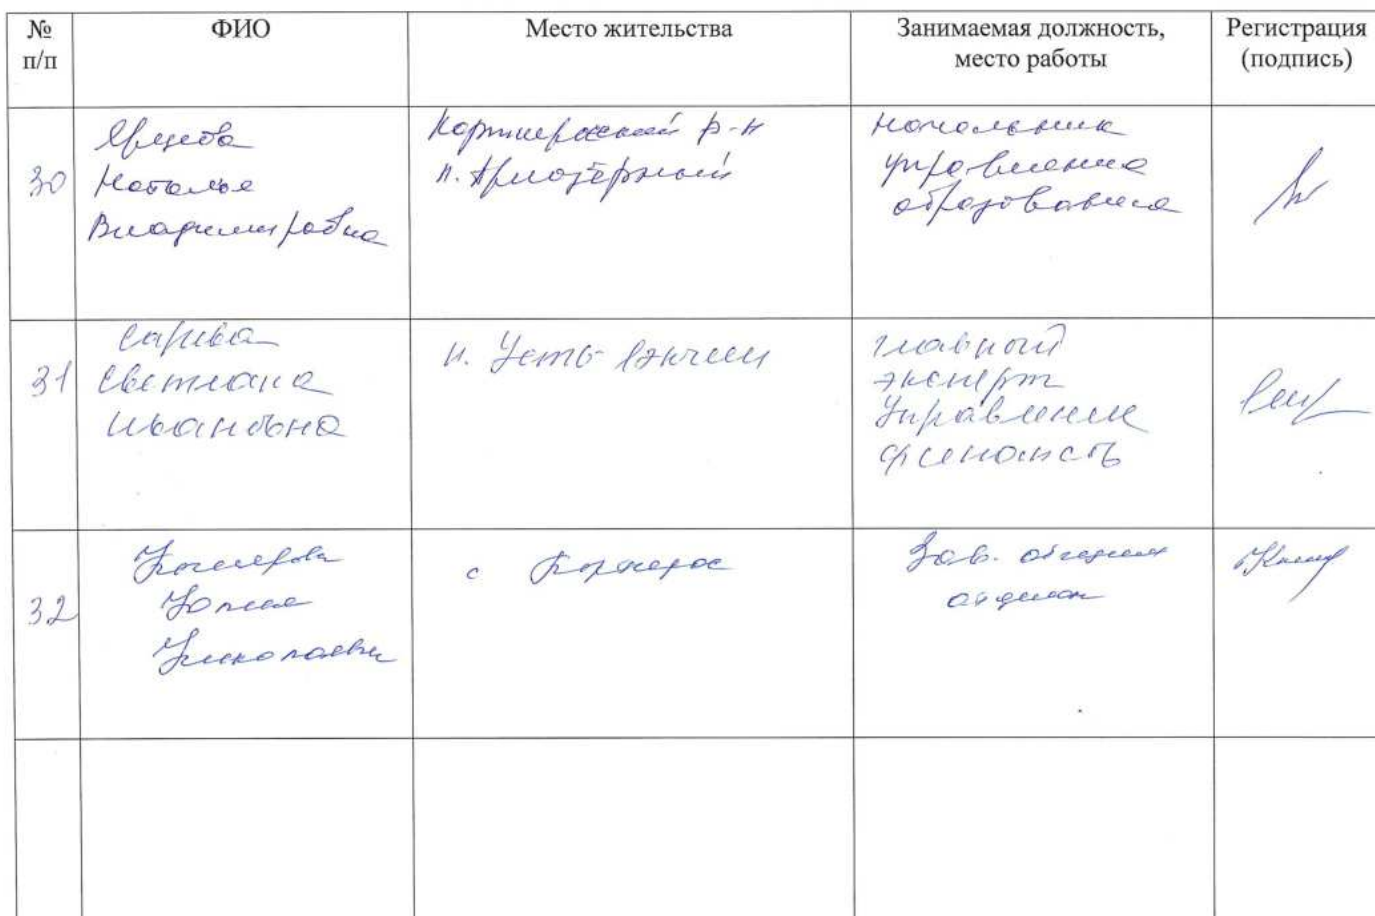 № п/п
ФИО
Место жительства
Занимаемая должность, место работы
Регистрация (подпись)
30
Ярцева
Наталья
Владимировна
Корткеросский р-н
п. Приозёрный
Начальник
управления
образования
31
Светлана
Ивановна
п. Усть-Лэкчим
главный
эксперт
Управления
финансов
32
Юлия
Николаевна
с Корткерос
Зав. общим
отделом